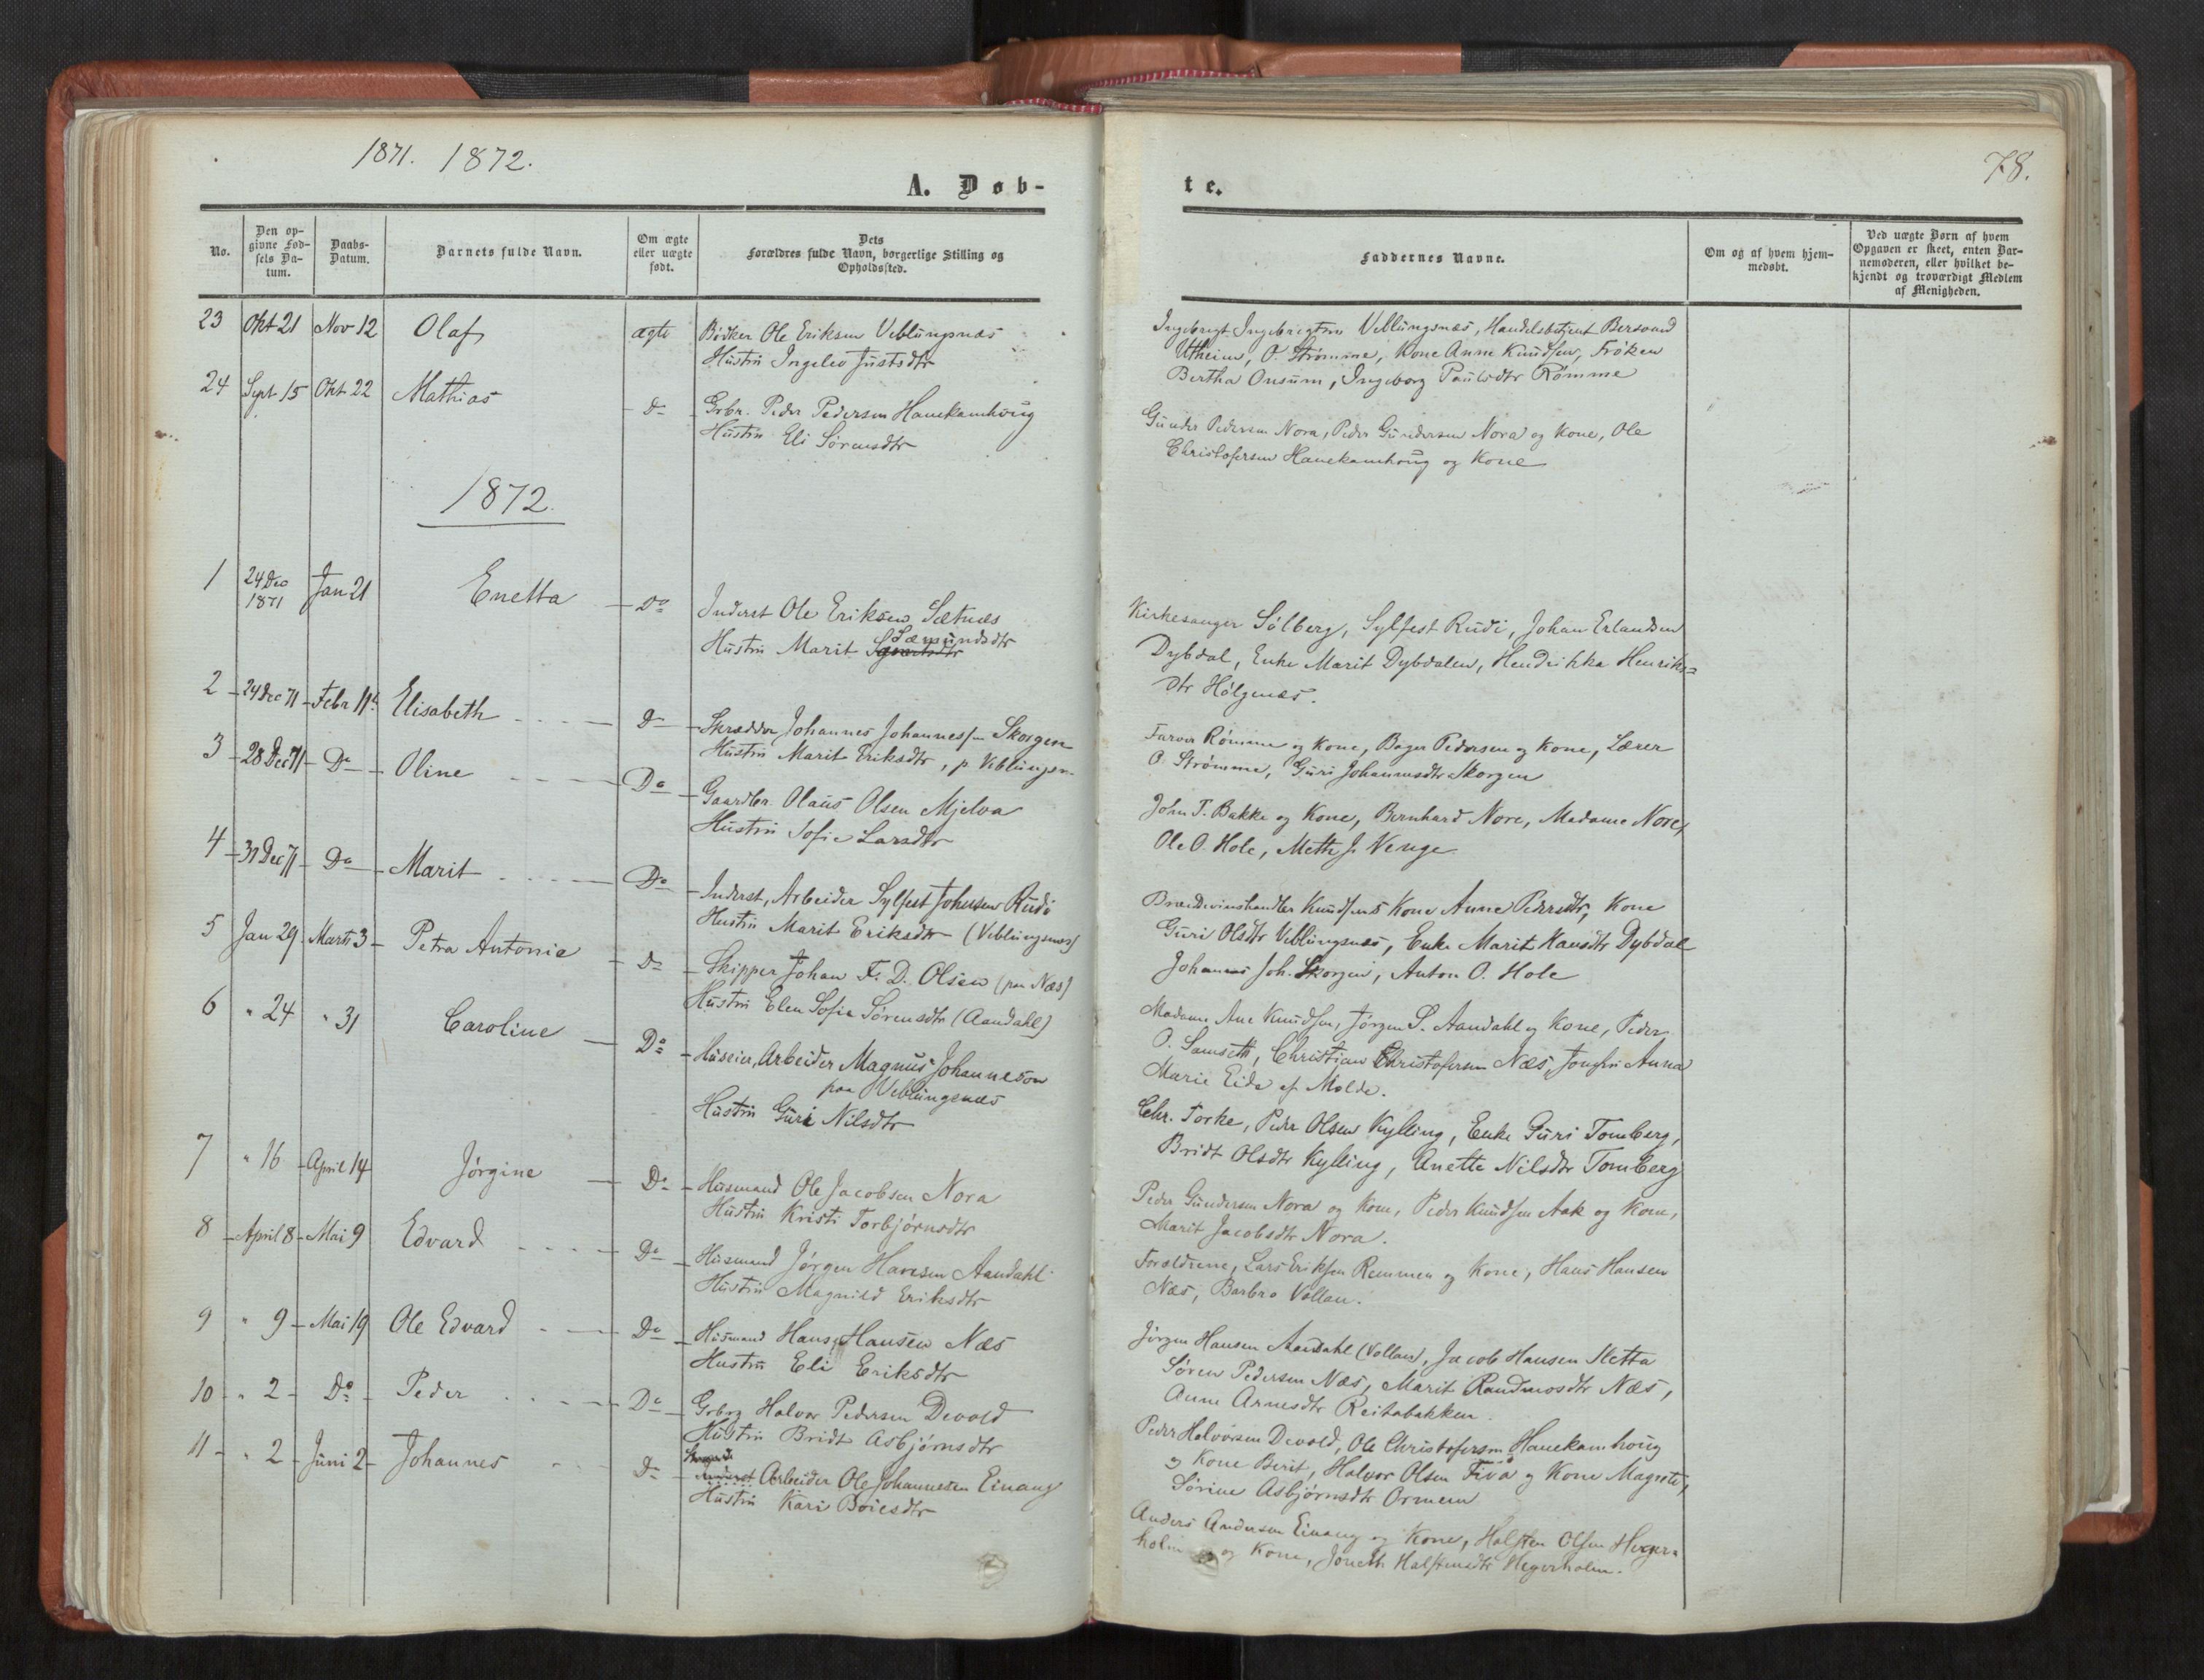 1871. 1872.
A. Døb-
No.
Den op-
givne Fød-
sels Da-
tum.
Daabs-
Datum.
Barnets fulde Navn.
Om ægte
eller uægte
født.
Dets
Forældres fulde Navn, borgerlige Stilling og
Opholdssted.
23 Okt 21 Nov 12 Olaf ægte Bødker Ole Eriksen Veblungsnæs
Hustru Ingelev Justsdtr
24 Sept 15 Okt 22 Mathias Do Grbr. Peder Pedersen Hanekamhoug
Hustru Eli Sørensdtr
1872.
1 24 Dec
1871 Jan 21 Enetta Do Inderst Ole Eriksen Sætnæs
Sæmundsdtr
Hustru Marit
2 24 Dec 71 Febr 11 Elisabeth Do Skrædder Johannes Johannessen Skorgen
Hustru Marit Eriksdtr, p. Veblungsn.
3 28 Dec 71 Do Oline Do Gaardbr. Olaus Olsen Mjelva
Hustru Sofie Larsdtr
4 31 Dec 71 Do Marit Do Inderst, Arbeider Sylfest Johnsen Rudi
Hustru Marit Eriksdtr (Veblungsnæs)
5 Jan 29 Marts 3 Petra Antonie Do Skipper Johan F. D. Olsen (paa Næs)
Hustru Elen Sofie Sørensdtr (Aandahl)
6 " 24 " 31 Caroline Do Huseier, Arbeider Magnus Johanneson
paa Veblungsnæs
Hustru Guri Nilsdtr
7 " 16 April 14 Jørgine Do Husmand Ole Jacobsen Nora
Hustru Kristi Torbjørnsdtr
8 April 8 Mai 9 Edvard Do Husmand Jørgen Hansen Aandahl
Hustru Magnild Eriksdtr
9 " 9 Mai 19 Ole Edvard Do Husmand Hans Hansen Næs
Hustru Eli Eriksdtr
10 " 2 Do Peder Do Grbrg Halvor Pedersen Devold
Hustru Bridt Asbjørnsdtr
11 " 2 Juni 2 Johannes Do Inderst Arbeider Ole Johannesen Einang
Hustru Kari Boiesdtr
78.
te.
Faddernes Navne.
Om og af hvem hjem-
medøbt.
Ved uægte Børn af hvem
Opgaven er skeet, enten Bar-
nemoderen, eller hvilket be-
kjendt og troværdigt Medlem
af Menigheden.
Ingebrigt Ingebrigtsen Veblungsnæs, Handelsbetjent Bersvend
Utheim, O. Strømme, Kone Anne Knudsen, Frøken
Bertha Onsum, Ingeborg Paulsdtr Rømme
Gunder Pedersen Nora, Peder Gundersen Nora og Kone, Ole
Christofersen Hanekamhoug og Kone
Kirkesanger Sølberg, Sylfest Rudi, Johan Erlandsen
Dybdal, Enke Marit Dybdalen, Hendrikka Henriks=
dtr Hølgenæs.
Farver Rømme og Kone, Bager Pedersen og Kone, Lærer
O. Strømme, Guri Johannesdtr Skorgen
John T. Bakke og Kone, Bernhard Nore, Madame Nore,
Ole O. Hole, Mette J. Venge
Brændevinshandler Knudsens Kone Anne Pedersdtr, Kone
Guri Olsdtr Veblungsnæs, Enke Marit Hansdtr Dybdal
Johannes Joh. Skorgen, Anton O. Hole
Madame Ane Knudsen, Jørgen S. Aandahl og Kone, Peder
O. Samseth, Christian Christofersen Næs, Jomfru Anna
Marie Eide af Molde.
Chr. Torke, Peder Olsen Kylling, Enke Guri Tomberg,
Bridt Olsdtr Kylling, Anette Nilsdtr Tomberg
Peder Gundersen Nora og Kone, Peder Knudsen Aak og Kone,
Marit Jacobsdtr Nora.
Forældrene, Lars Eriksen Remmen og Kone, Hans Hansen
Næs, Barbro Vollan.
Jørgen Hansen Aandahl (Vollan), Jacob Hansen Sletta
Søren Pedersen Næs, Marit Randmosdtr Næs,
Anne Arnesdtr Reitabakken.
Peder Halvorsen Devold, Ole Christofersen Hanekamhoug
og Kone Berit, Halvor Olsen Fiva og Kone Magrete,
Sørine Asbjørnsdtr Ormem
Anders Andersen Einang og Kone, Halsten Olsen Heger=
holm og Kone, Joneth Halstensdtr Hegerholm.